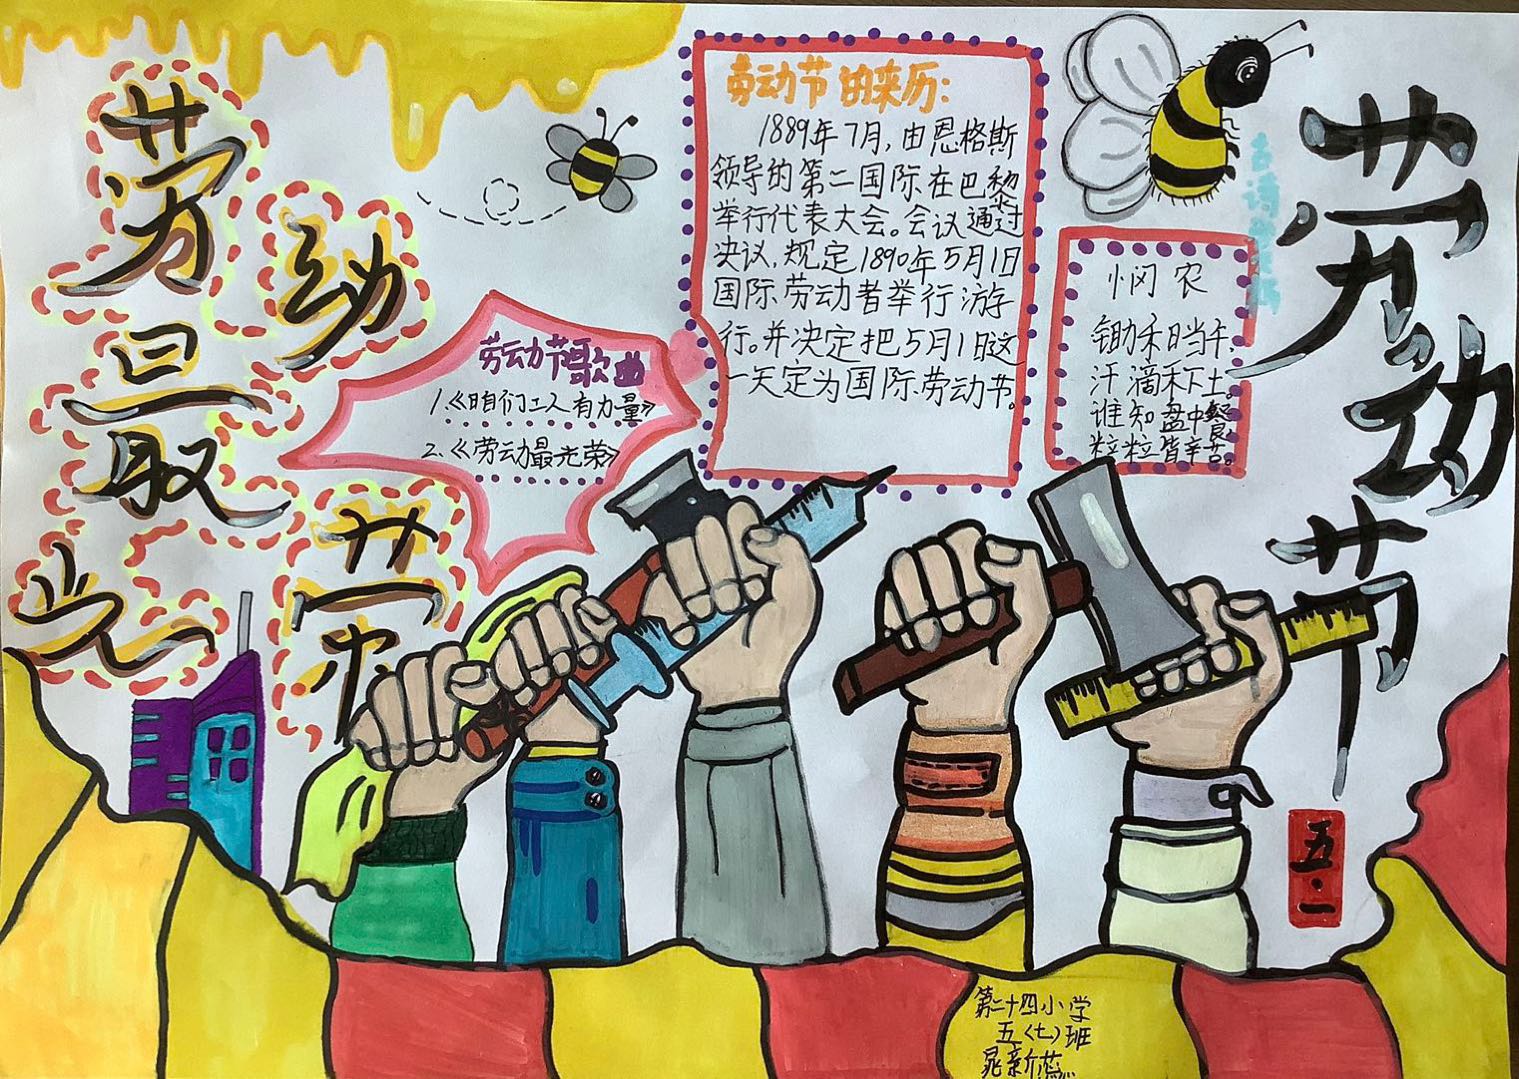 劳动最光荣
劳动节歌曲
1.《咱们工人有力量》
2.《劳动最光荣》
劳动节的来历：
1889年7月，由恩格斯
领导的第二国际在巴黎
举行代表大会。会议通过
决议，规定1890年5月1日
国际劳动者举行游
行。并决定把5月1日这
一天定为国际劳动节。
古诗
悯农
锄禾日当午，
汗滴禾下土。
谁知盘中餐，
粒粒皆辛苦。
劳动节
五·一
第二十四小学
五〈七〉班
晁新蕊